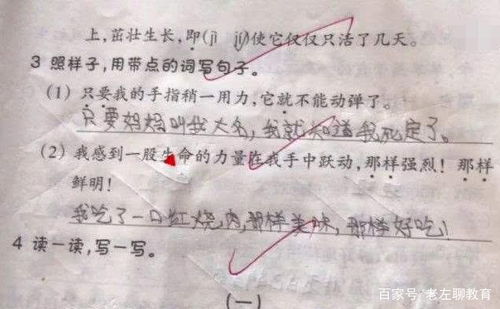 上,茁壮生长,即(jì jí)使它仅仅只活了几天。
3 照样子,用带点的词写句子。
(1) 只要我的手指稍一用力,它就不能动弹了。
只要妈妈叫我大名,我就知道我死定了。
(2) 我感到一股生命的力量在我手中跃动,那样强烈!那样
鲜明!
我吃了一口红烧肉,那样美味,那样好吃!
4 读一读,写一写。
(一)
百家号/老左聊教育